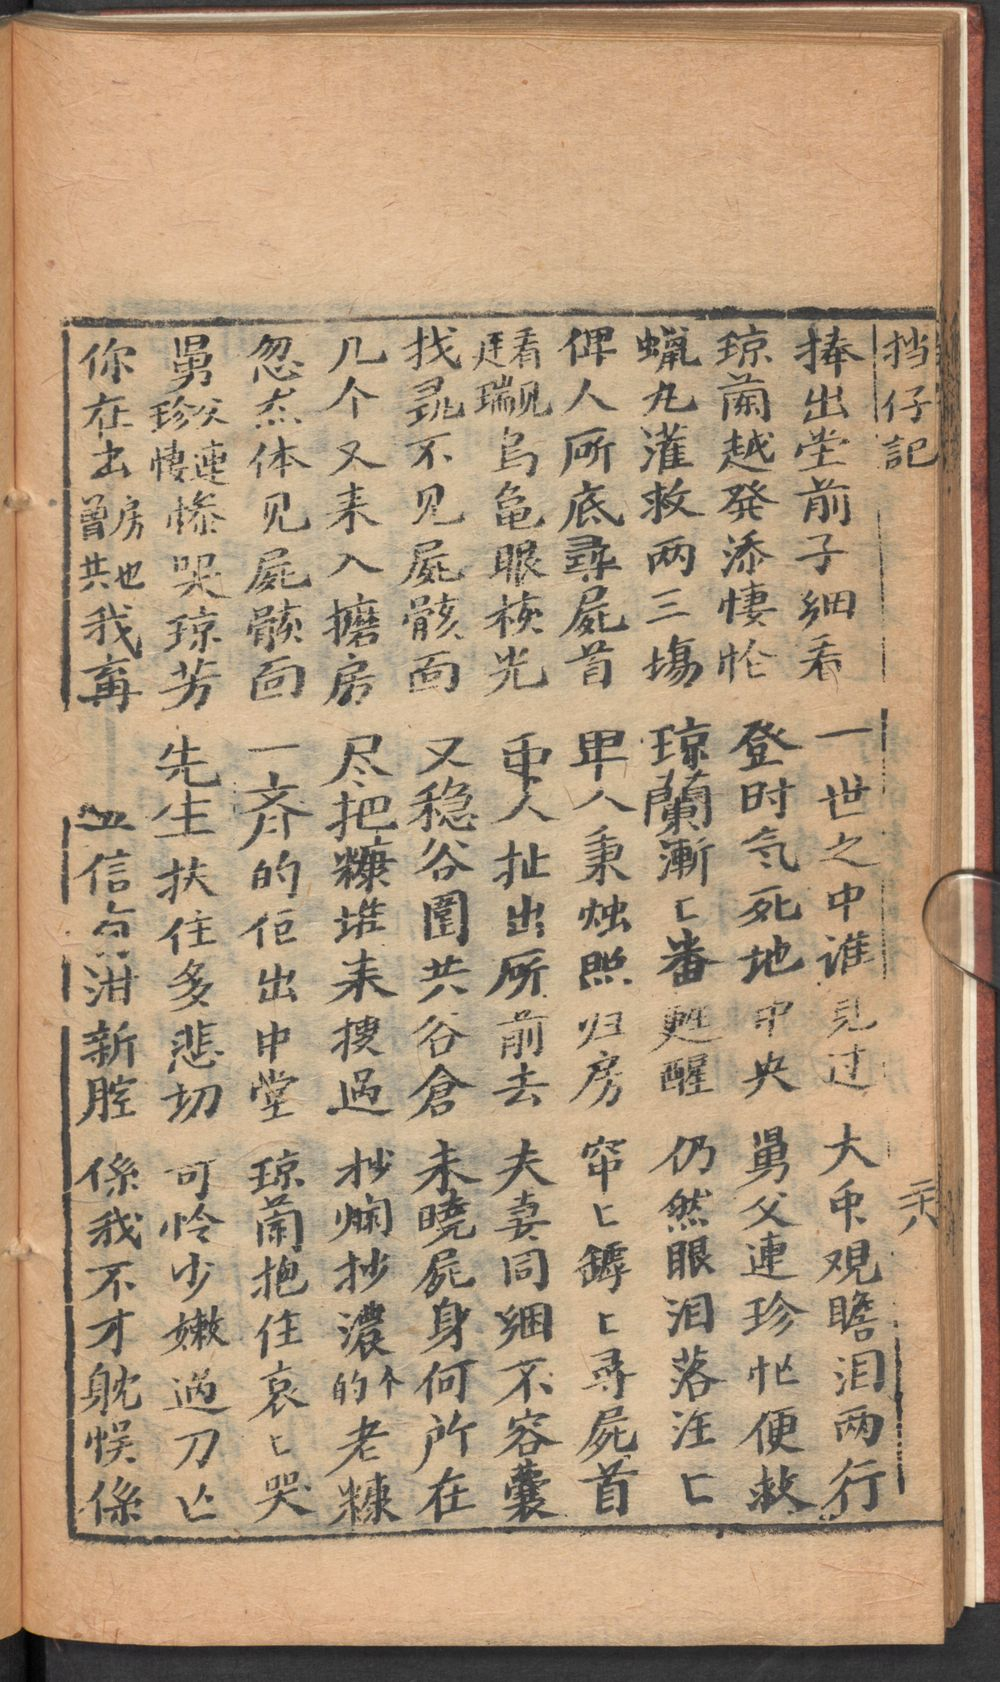 挡仔記
捧出堂前子細看 一世之中谁見过 大𠂔观瞻泪两行
琼蘭越発添悽怆 登时气死地中央 舅父連珍忙便救
蠟丸灌救两三塲 琼蘭漸〻番甦醒 仍然眼泪落汪〻
俾人所底尋屍首 甲人秉烛照归房 帘〻罅〻尋屍首
看见廷瑞烏龟眼核光 𠂔人扯出所前去 夫妻同綑不容囊
找𠮨不见屍骸面 又稳谷圍共谷倉 未曉屍身何所在
几个又来入擔房 尽把糠堆来搜過 抄爛抄濃个的老糠
忽然体见屍骸面 一齐的佢出中堂 琼蘭抱住哀〻哭
舅父連珍悽惨哭琼芳 先生扶住多悲切 可怜少嫩過刀亡
你在出房也曾共我再 信 泔新腔 係我不才躭悮係
六